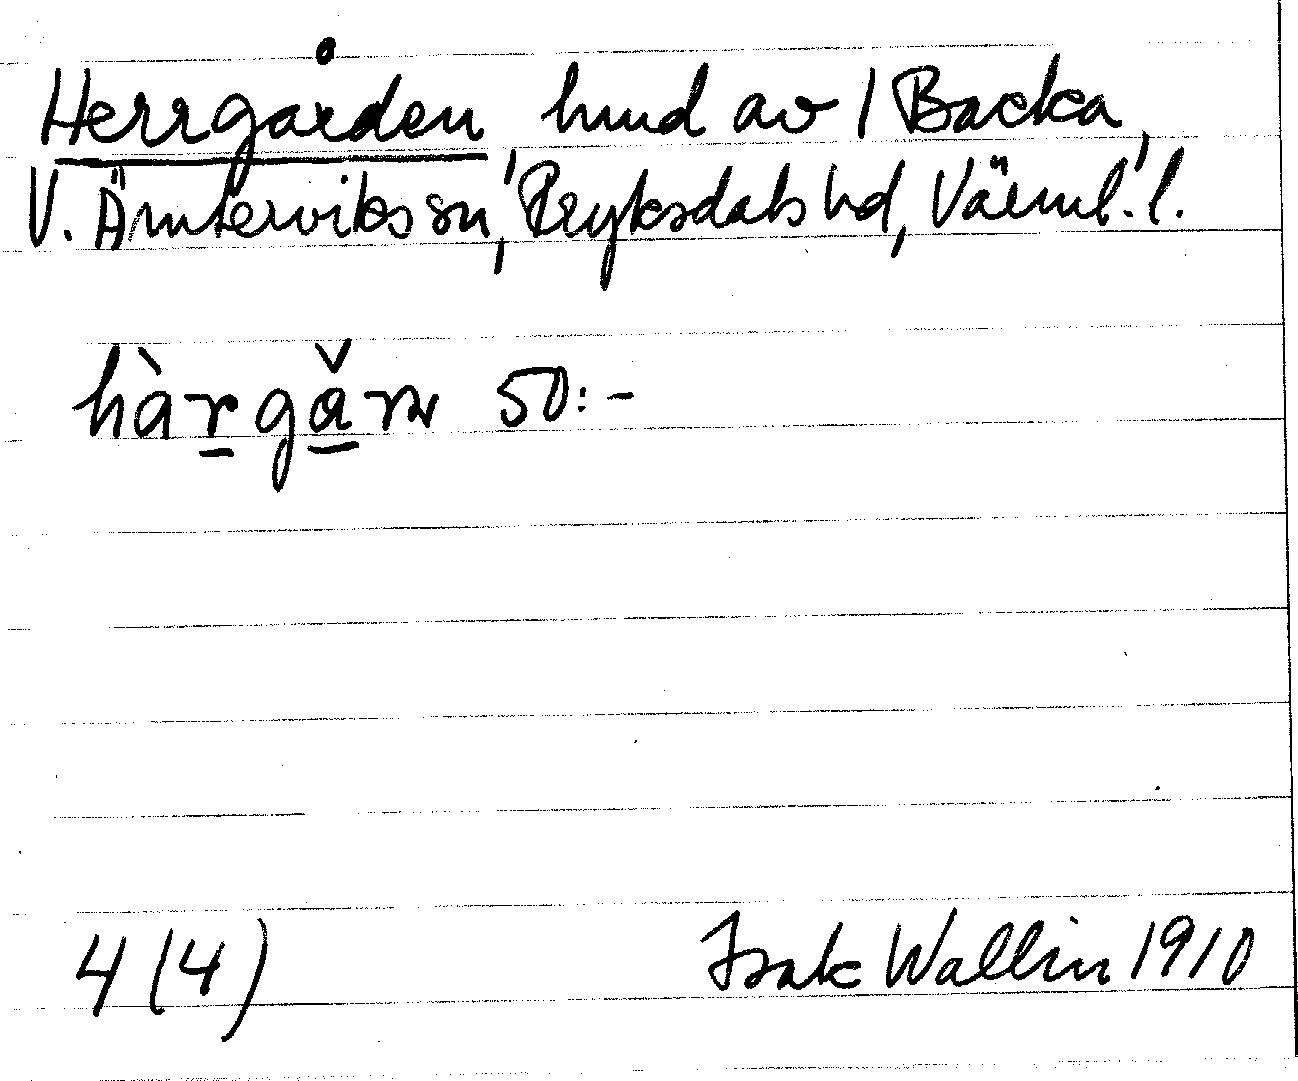 Herrgården hmd av 1 Backa,
V. Ämterviks sn, Fryksdals hd, Värml. l.
hàrgǎrn 50:-
4 (4)
Isak Wallin 1910